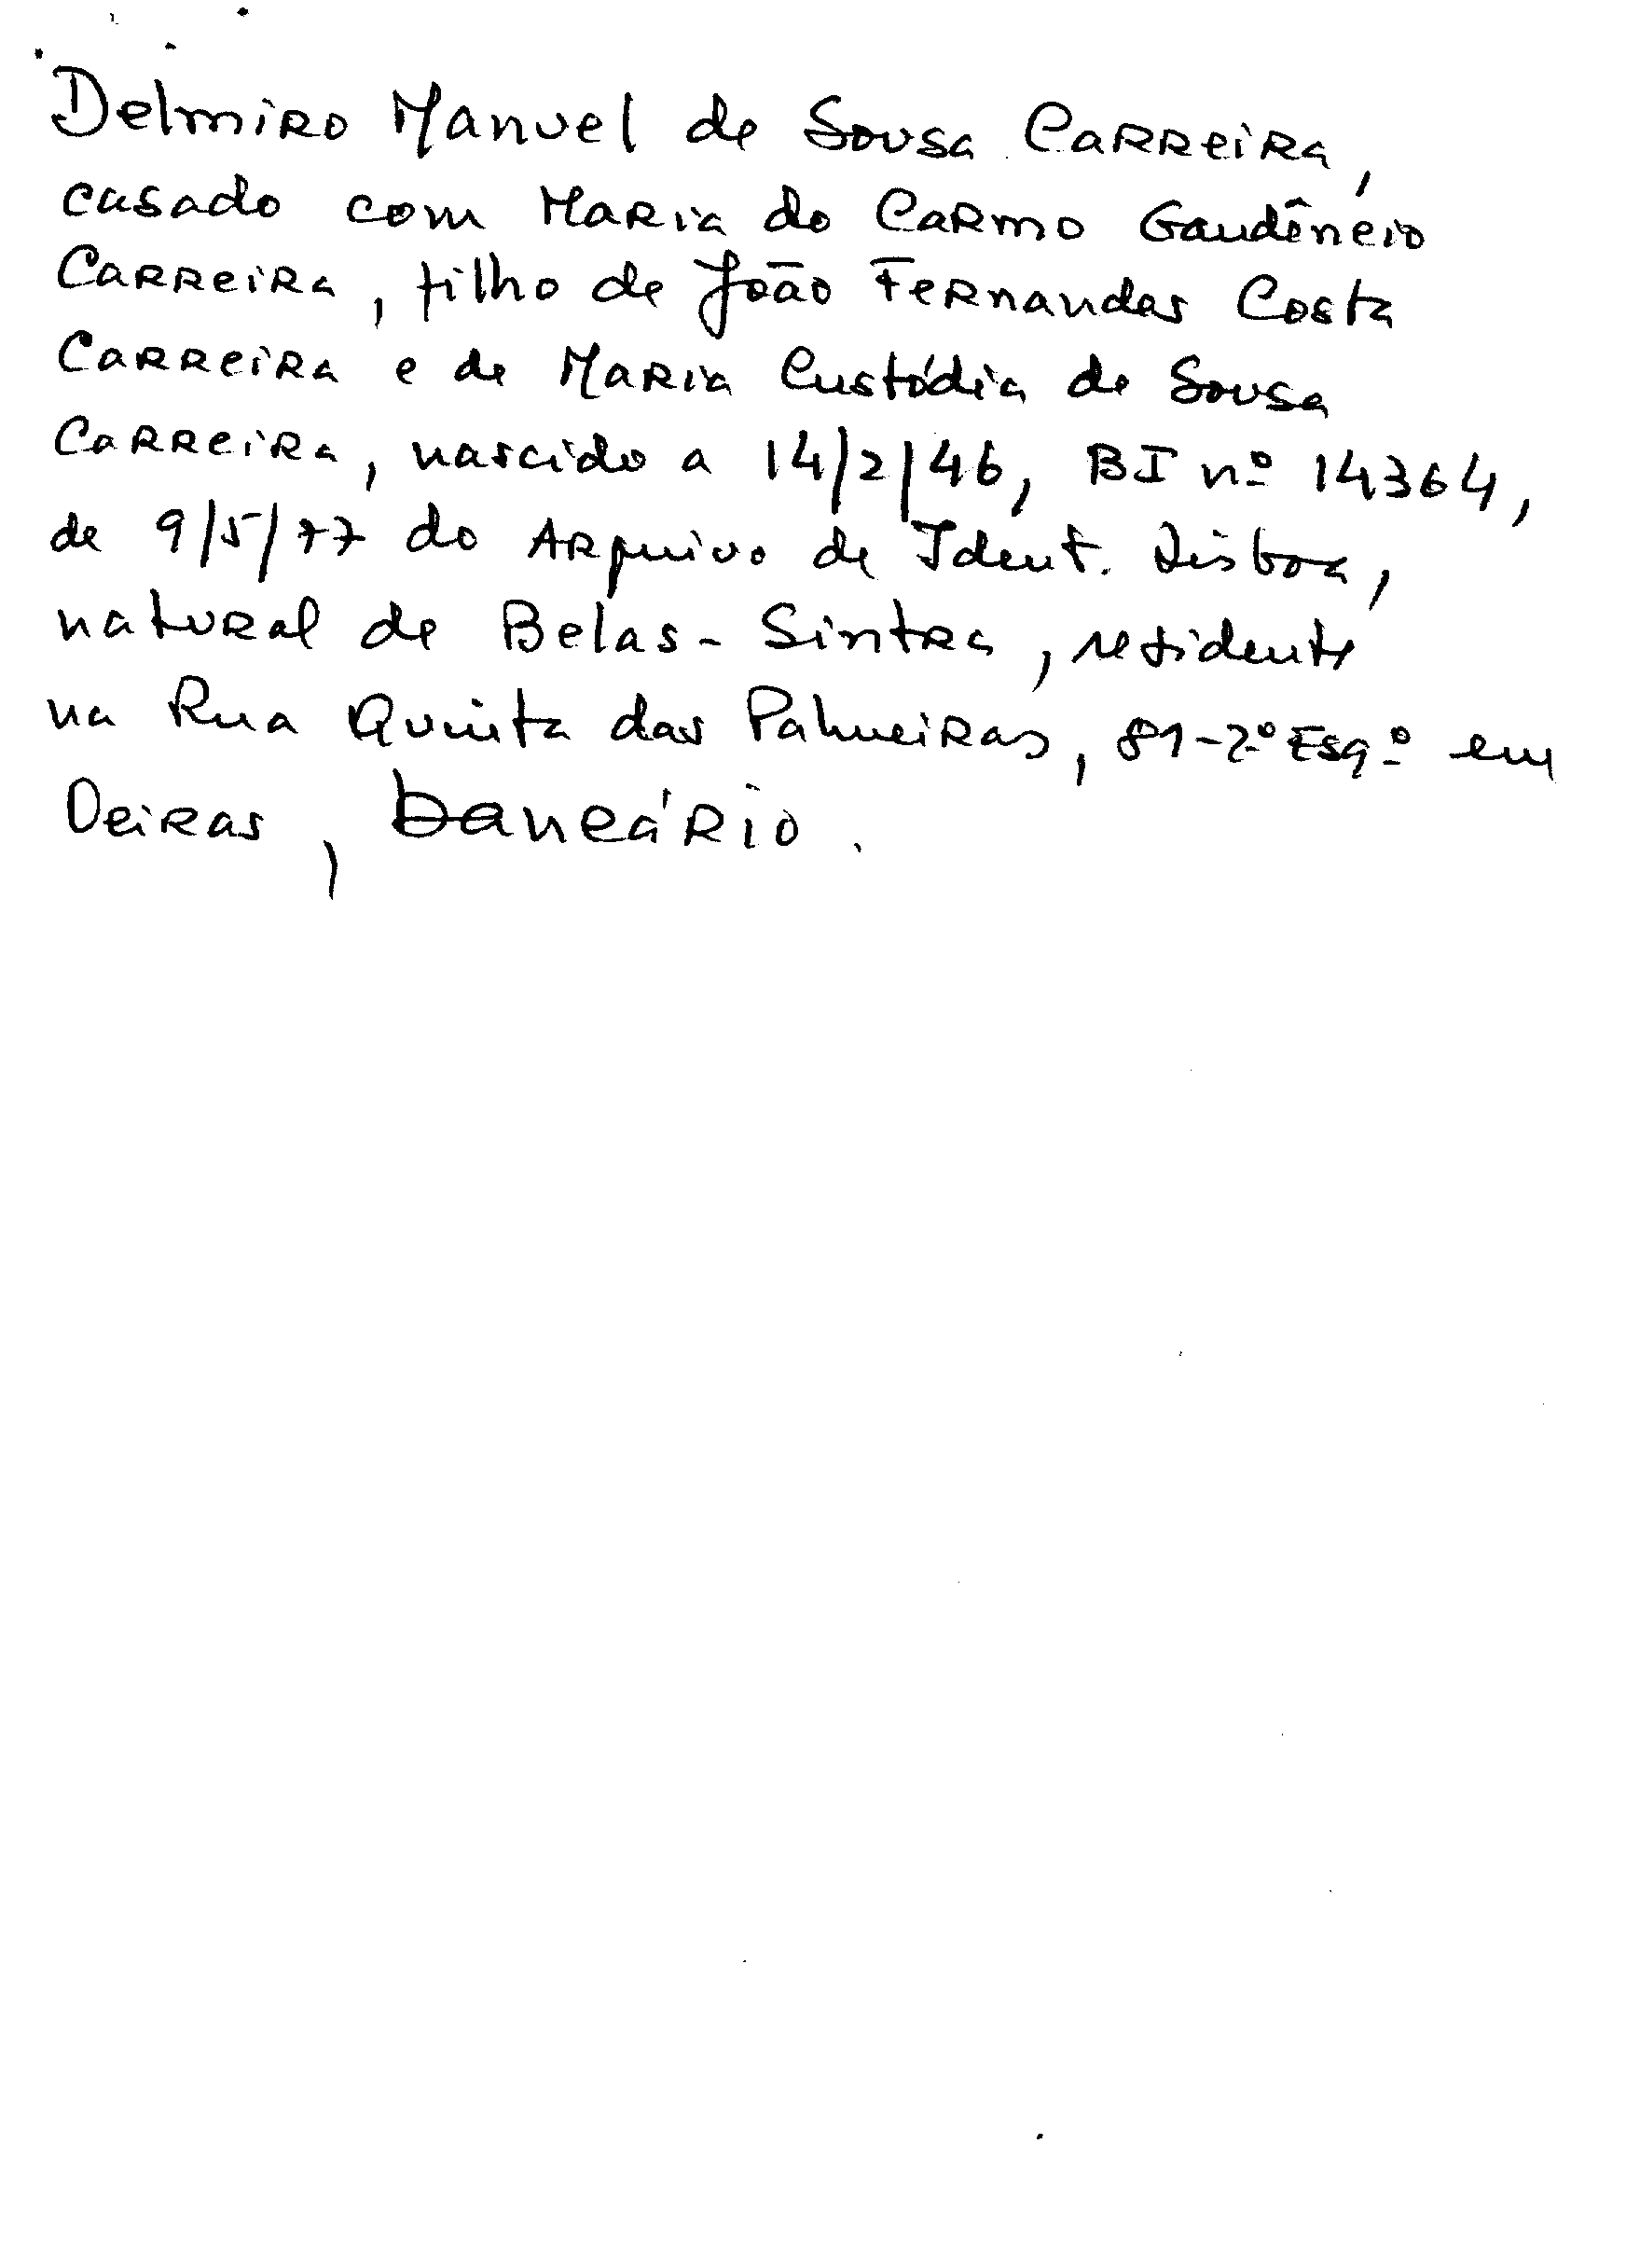 Delmiro Manuel de Sousa Carreira,
casado com Maria do Carmo Gaudêncio
Carreira, filho de João Fernandes Costa
Carreira e de Maria Custódia de Sousa
Carreira, nascido a 14/2/46, BI nº 14364,
de 9/5/77 do Arquivo de Ident. Lisboa,
natural de Belas - Sintra, residente
na Rua Quinta das Palmeiras, 81-2º Esqº em
Oeiras, bancário.